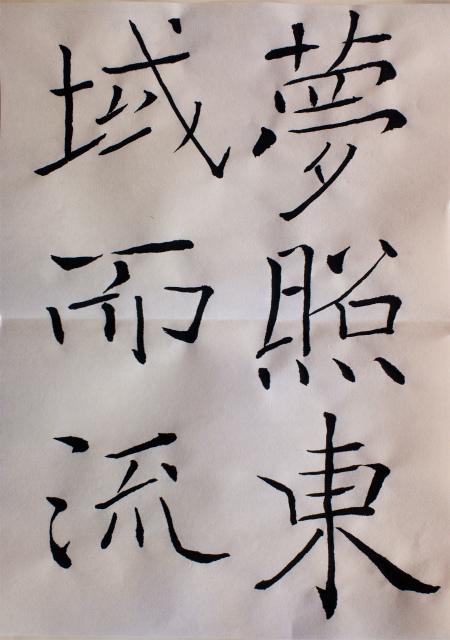 夢照東
域而流